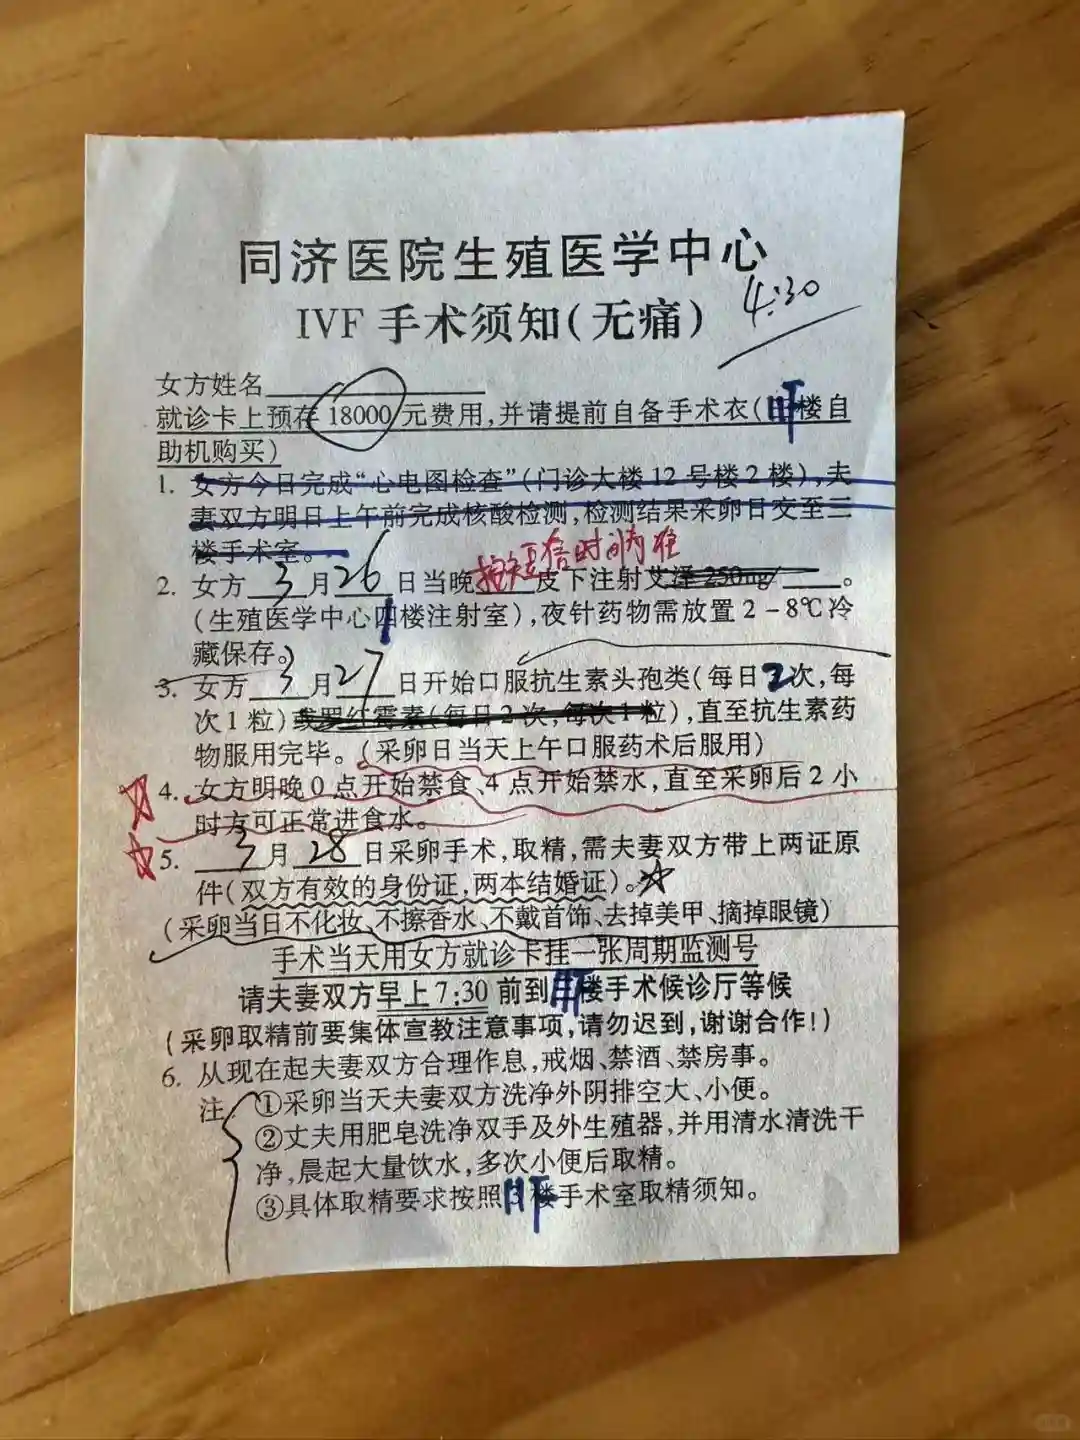 同济医院生殖医学中心
IVF 手术须知(无痛)
4:30
女方姓名
就诊卡上预存 18000 元费用,并请提前自备手术衣( 楼自
助机购买)
1. 女方今日完成“心电图检查”(门诊大楼 12 号楼 2 楼),夫
妻双方明日上午前完成核酸检测,检测结果采卵日交至三
楼手术室。
按短信时间为准
2. 女方 3 月 26 日当晚 皮下注射艾泽 250mg/ 。
(生殖医学中心四楼注射室),夜针药物需放置 2-8℃冷
藏保存。
3. 女方 3 月 27 日开始口服抗生素头孢类(每日 2 次,每
次 1 粒)或罗红霉素(每日 2 次,每次 1 粒),直至抗生素药
物服用完毕。(采卵日当天上午口服药术后服用)
4. 女方明晚 0 点开始禁食、4 点开始禁水,直至采卵后 2 小
时方可正常进食水。
5. 3 月 28 日采卵手术,取精,需夫妻双方带上两证原
件(双方有效的身份证,两本结婚证)。
(采卵当日不化妆、不擦香水、不戴首饰、去掉美甲、摘掉眼镜)
手术当天用女方就诊卡挂一张周期监测号
请夫妻双方早上 7:30 前到 楼手术候诊厅等候
(采卵取精前要集体宣教注意事项,请勿迟到,谢谢合作!)
6. 从现在起夫妻双方合理作息,戒烟、禁酒、禁房事。
注:①采卵当天夫妻双方洗净外阴排空大、小便。
②丈夫用肥皂洗净双手及外生殖器,并用清水清洗干
净,晨起大量饮水,多次小便后取精。
③具体取精要求按照 楼手术室取精须知。